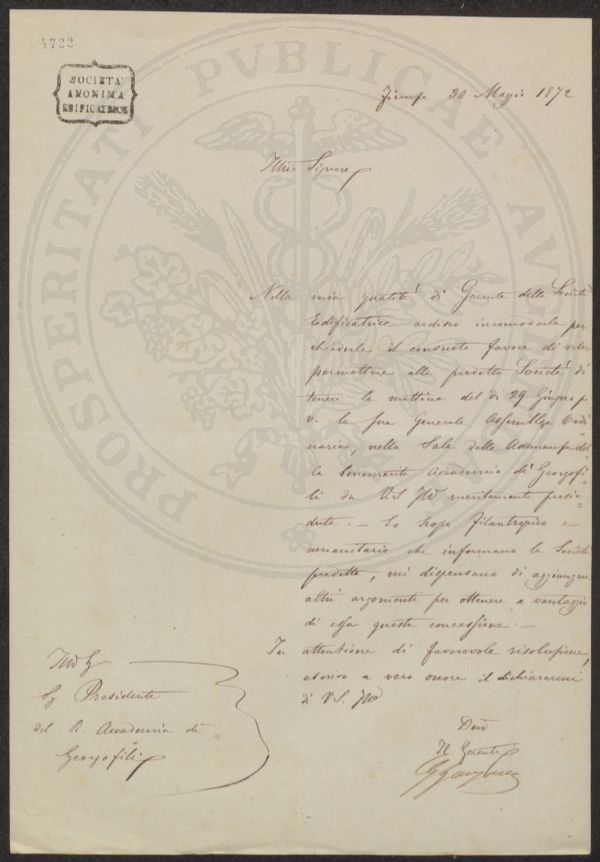 4722
SOCIETA'
ANONIMA
EDIFICATRICE
PROSPERITATI PVBLICAE AVGENDAE
Firenze 30 Maggio 1872
Illmo Signore
Nella mia qualità di Gerente della Società
Edificatrice ardisco incomodarla per
chiederle il consueto favore di voler
permettere alla predetta Società di
tenere la mattina del dì 29 Giugno p
v. la sua Generale Assemblea Ordi
naria, nella Sala delle Adunanze del
la benemerita Accademia di Georgofi
li da V.S. Illma meritamente presie=
duta. — Lo scopo filantropico e
umanitario che informano la Società
predetta, mi dispensano di aggiungere
altri argomenti per ottenere a vantaggio
di essa questa concessione. —
In attenzione di favorevole risoluzione,
ascrivo a vero onore il dichiararmi
di V.S. Illma
Devmo
Il Gerente
Illmo
Sig Presidente
del R. Accademia di
Georgofili